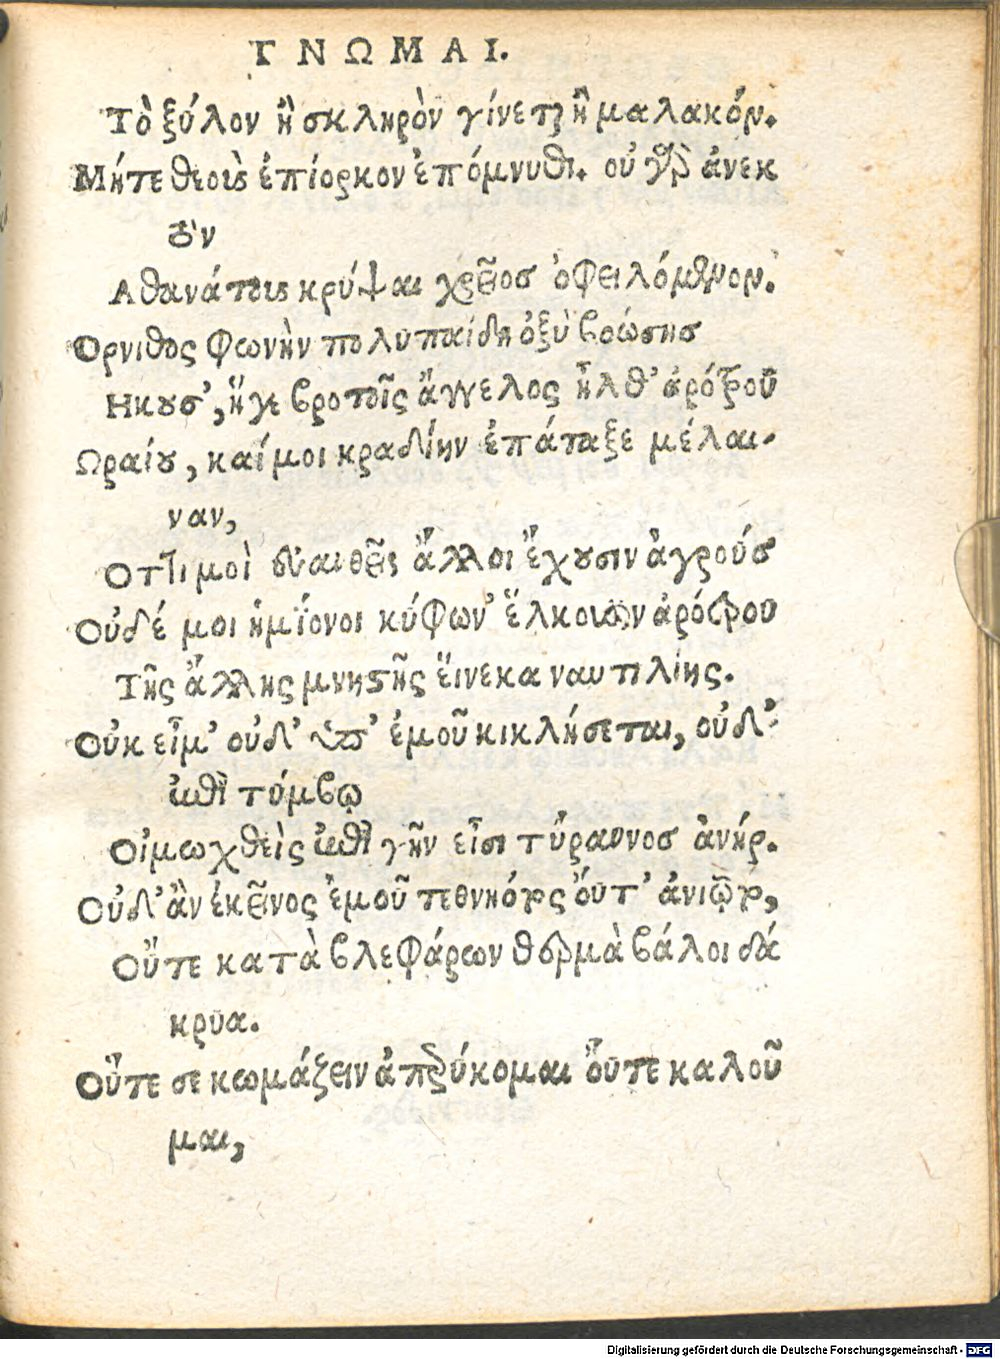 ΓΝΩΜΑΙ.
Τὸ ξύλον ἢ σκληρὸν γίνεται ἢ μαλακόν.
Μήτε θεοὺς ἐπίορκον ἐπόμνυθι. οὐ γὰρ ἀνεκ
τὸν
Αθανάτους κρύψαι χρεῖος ὀφειλόμενον.
Ορνιθος φωνὴν πολυπαίδη ὀξὺ βοώσης
Ηκουσ', ἥγε βροτοῖς ἄγγελος ἦλθ' ἀρότρου
Ωραίου, καί μοι κραδίην ἐπάταξε μέλαι-
ναν,
Οττί μοὶ εὐαιθεῖς ἄλλοι ἔχουσιν ἀγρούς
Οὐδέ μοι ἡμίονοι κύφων' ἕλκουσιν ἀρότρου
Τῆς ἄλλης μνηστῆς εἵνεκα ναυτιλίης.
Οὐκ εἶμ' οὐδ' ὑπ' ἐμοῦ κικλήσεται, οὐδ'
ἐπὶ τύμβῳ
Οἰμωχθεὶς ἐπὶ γῆν εἶσι τύραννος ἀνήρ.
Οὐδ' ἂν ἐκεῖνος ἐμοῦ τεθνηότος ὄυτ' ἀνιῷτο,
Οὔτε κατὰ βλεφάρων θερμὰ βάλοι δά
κρυα.
Οὔτε σε κωμάζειν ἀπερύκομαι οὔτε καλοῦ
μαι,
Digitalisierung gefördert durch die Deutsche Forschungsgemeinschaft - DFG